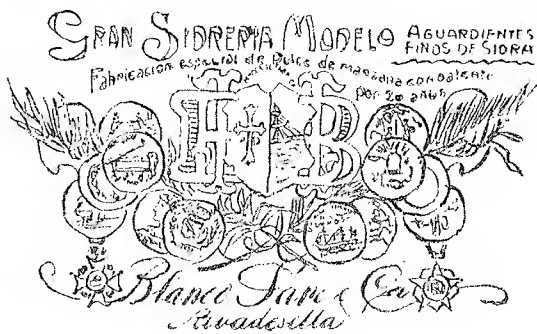 GRAN SIDRERIA MODELO
AGUARDIENTES
FINOS DE SIDRA
Fabricación especial de de manzana
por 20 años
H B
Blanco y Cia
Rivadesella